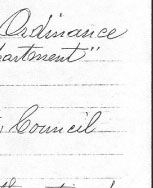 Ordinance
artment"
Council